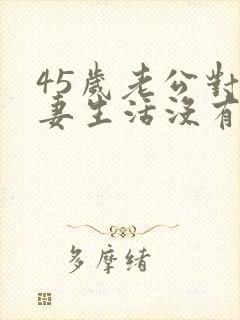 45歲老公對
妻生活沒有
多摩緒